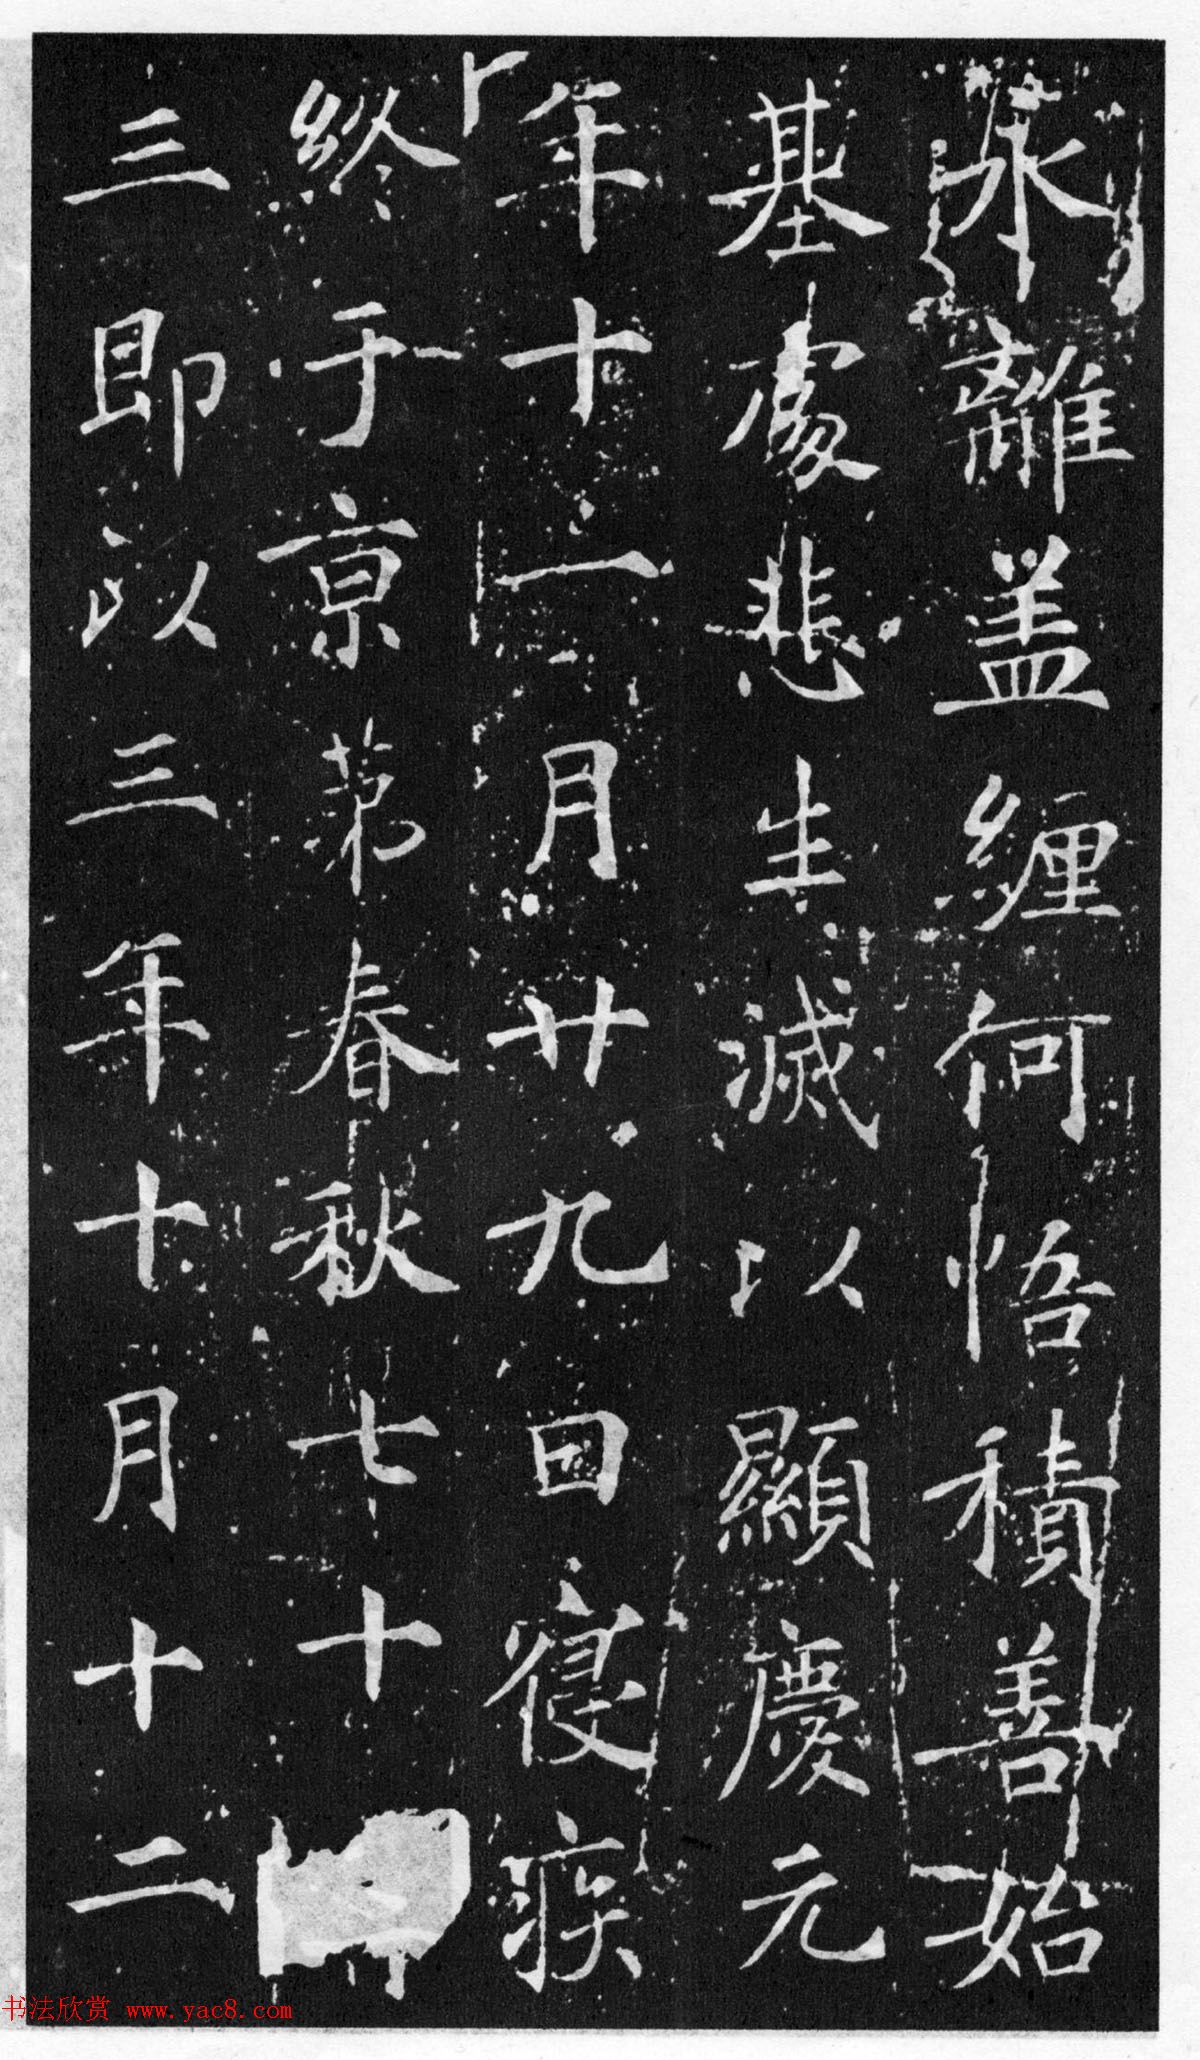 永離盖纏何悟積善始
基處悲生滅以顯慶元
年十一月廿九日寑疾
終于京苐春秋七十
三即以三年十月十二
书法欣赏 www.yac8.com